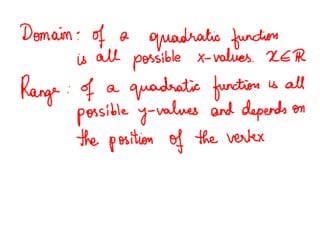 Domain: of a quadratic function
is all possible x-values. x∈ℝ
Range: of a quadratic function is all
possible y-values and depends on
the position of the vertex